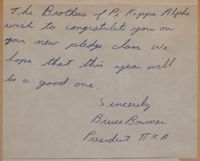 The Brothers of Pi Kappa Alpha
wish to congratulate you on
your new pledge class. We
hope that this year will
be a good one.
Sincerely
Bruce Bowman
President ΠKA